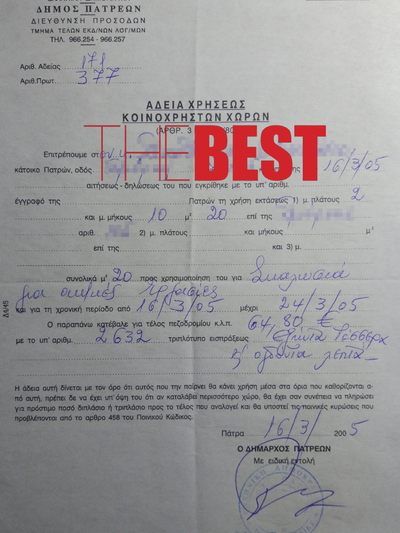 ΔΗΜΟΣ ΠΑΤΡΕΩΝ
ΔΙΕΥΘΥΝΣΗ ΠΡΟΣΟΔΩΝ
ΤΜΗΜΑ ΤΕΛΩΝ ΕΚΔ/ΝΩΝ ΛΟΓ/ΜΩΝ
ΤΗΛ. 966.254 - 966.257
Αριθ. Αδείας 171
Αριθ. Πρωτ. 377
ΑΔΕΙΑ ΧΡΗΣΕΩΣ
ΚΟΙΝΟΧΡΗΣΤΩΝ ΧΩΡΩΝ
(ΑΡΘΡ. 3 80
THE BEST
Επιτρέπουμε στ
κάτοικο Πατρών, οδός της 16/3/05
αιτήσεως - δηλώσεως του που εγκρίθηκε με το υπ' αριθμ.
έγγραφό της Πατρών τη χρήση εκτάσεως 1) μ. πλάτους 2
και μ. μήκους 10 μ² 20 επί της
αριθ. 2) μ. πλάτους και μ. μήκους μ²
επί της και 3) μ.
συνολικά μ² 20 προς χρησιμοποίηση του για Σκαλωσιά
για οικ/κές εργασίες
και για τη χρονική περίοδο από 16/3/05 μέχρι 24/3/05
Ο παραπάνω κατέβαλε για τέλος πεζοδρομίου κ.λ.π. 64,80 €
με το υπ' αριθμ. 2632 τριπλότυπο εισπράξεως Εξήντα τέσσερα
& ογδόντα λεπτά
Δ4/45
Η άδεια αυτή δίνεται με τον όρο ότι αυτός που την παίρνει θα κάνει χρήση μέσα στα όρια που καθορίζονται α-
πό αυτή, πρέπει δε να έχει υπ' όψη του ότι αν καταλάβει περισσότερο χώρο, θα έχει σαν συνέπεια να πληρώσει
για πρόστιμο ποσό διπλάσιο ή τριπλάσιο προς το τέλος που αναλογεί και θα υποστεί τις ποινικές κυρώσεις που
προβλέπονται από το αρθρο 458 του Ποινικού Κώδικος.
Πάτρα 16/3/ 2005
Ο ΔΗΜΑΡΧΟΣ ΠΑΤΡΕΩΝ
Με ειδική εντολή